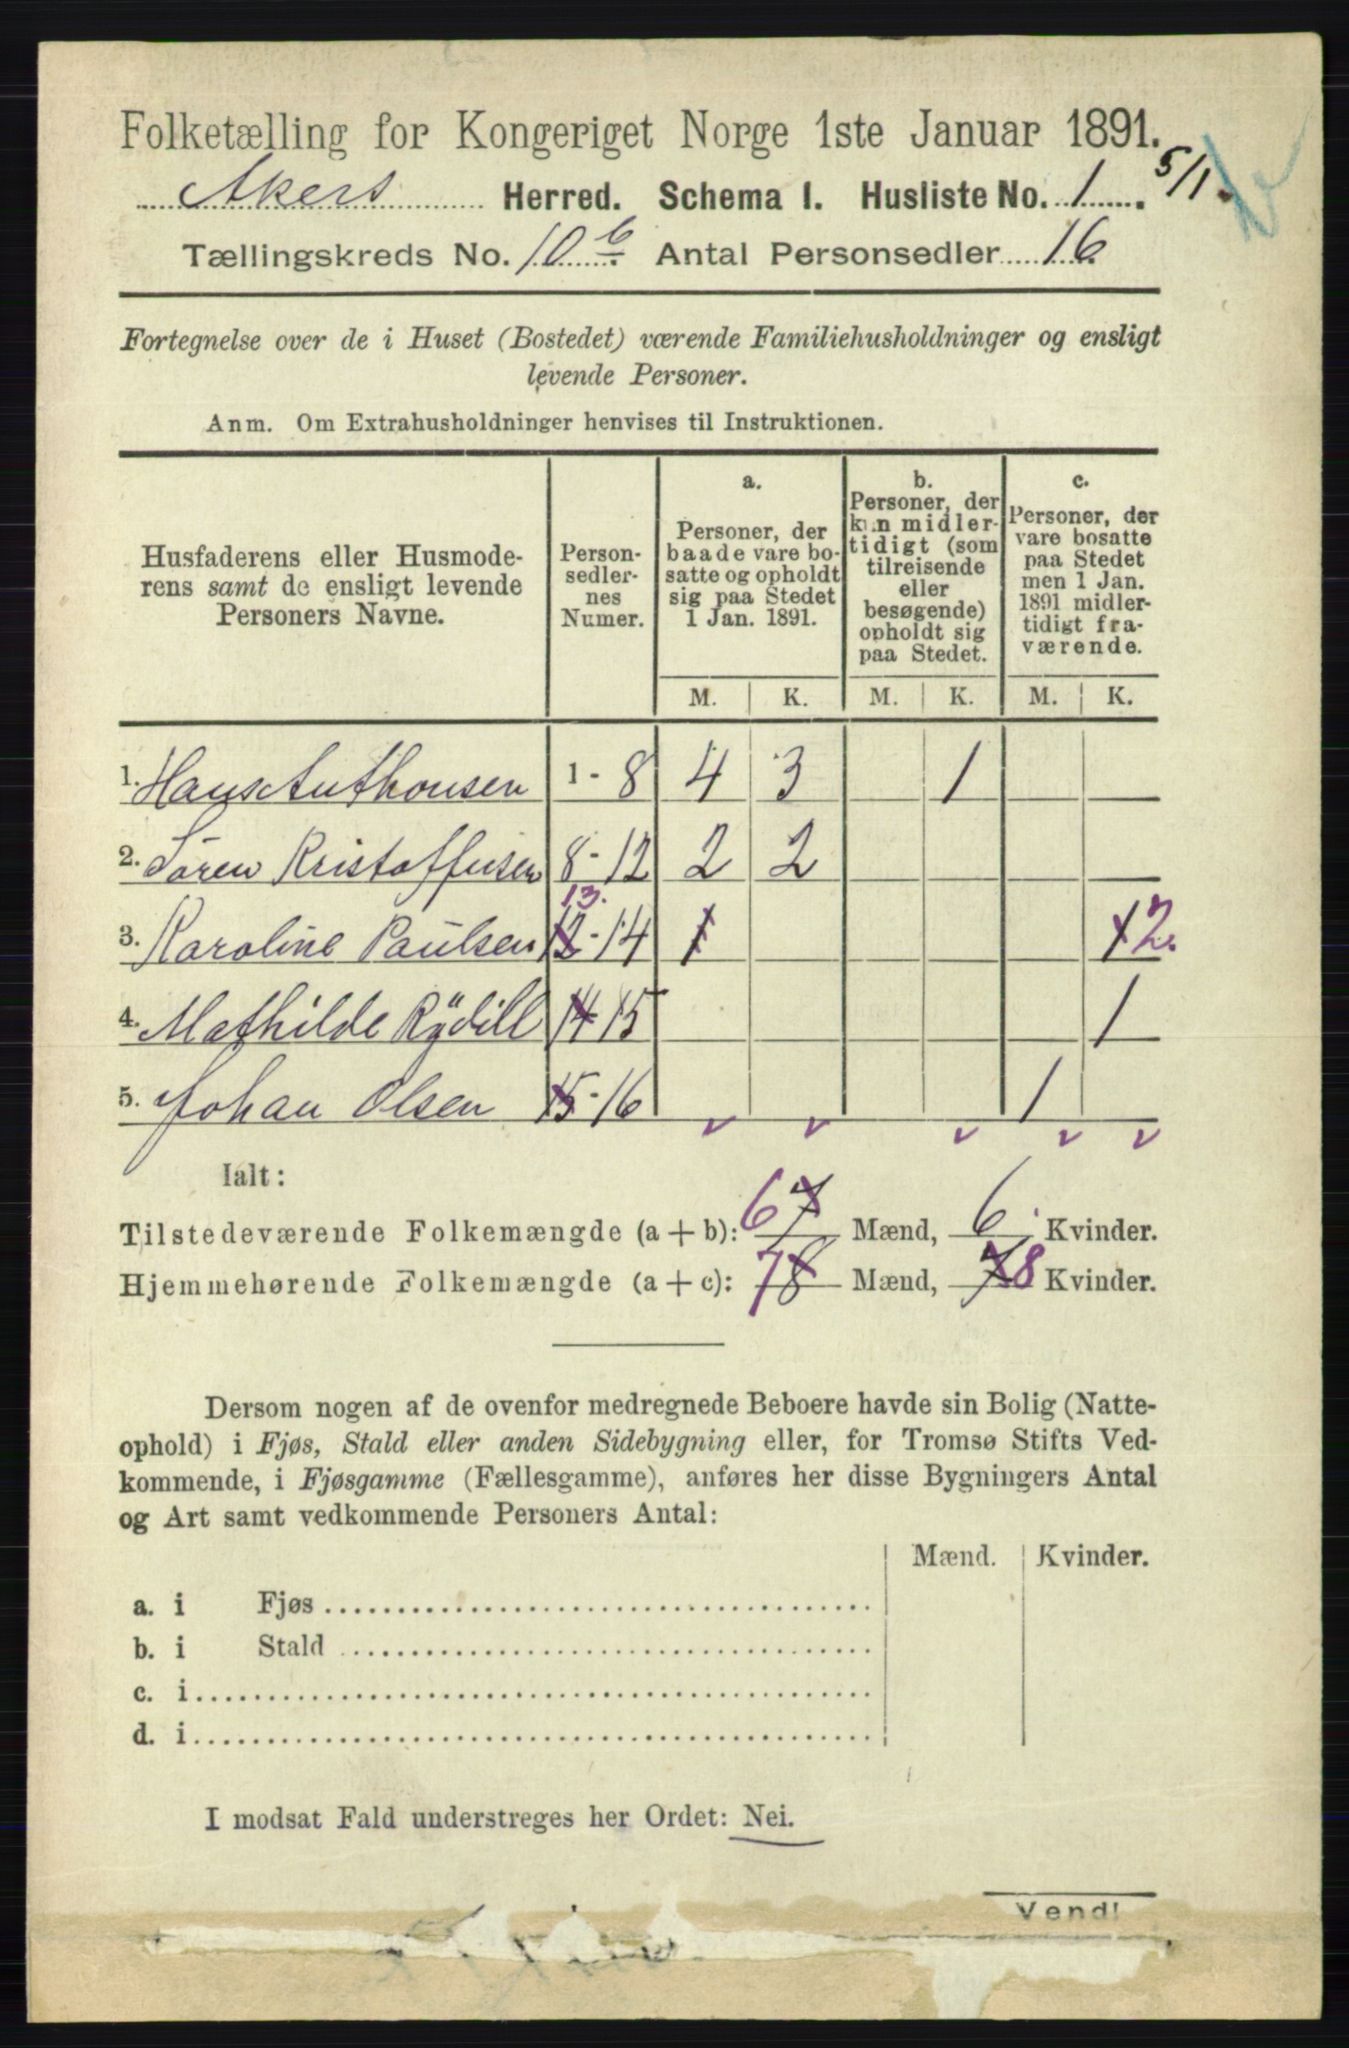 Folketælling for Kongeriget Norge 1ste Januar 1891.
Akers Herred. Schema I. Husliste No. 1. 5/1.
Tællingskreds No. 10 b. Antal Personsedler 16.
Fortegnelse over de i Huset (Bostedet) værende Familiehusholdninger og ensligt
levende Personer.
Anm. Om Extrahusholdninger henvises til Instruktionen.
Husfaderens eller Husmode-
rens samt de ensligt levende
Personers Navne.
Person-
sedler-
nes
Numer.
a.
Personer, der
baade vare bo-
satte og opholdt
sig paa Stedet
1 Jan. 1891.
b.
Personer, der
kun midler-
tidigt (som
tilreisende
eller
besøgende)
opholdt sig
paa Stedet.
c.
Personer, der
vare bosatte
paa Stedet
men 1 Jan.
1891 midler-
tidigt fra-
værende.
M. K. M. K. M. K.
1. Hans Anthonsen 1 - 8 4 3 1
2. Søren Kristoffersen 8 - 12 2 2
13.
3. Karoline Paulsen 12 - 14 1 1 2.
4. Mathilde Rydill 14 15 1
5. Johan Olsen 15 - 16 1
Ialt:
Tilstedeværende Folkemængde (a + b): 6 7 Mænd, 6 Kvinder.
Hjemmehørende Folkemængde (a + c): 7 8 Mænd, 7 8 Kvinder.
Dersom nogen af de ovenfor medregnede Beboere havde sin Bolig (Natte-
ophold) i Fjøs, Stald eller anden Sidebygning eller, for Tromsø Stifts Ved-
kommende, i Fjøsgamme (Fællesgamme), anføres her disse Bygningers Antal
og Art samt vedkommende Personers Antal:
Mænd. Kvinder.
a. i Fjøs
b. i Stald
c. i
d. i
I modsat Fald understreges her Ordet: Nei.
Vend!